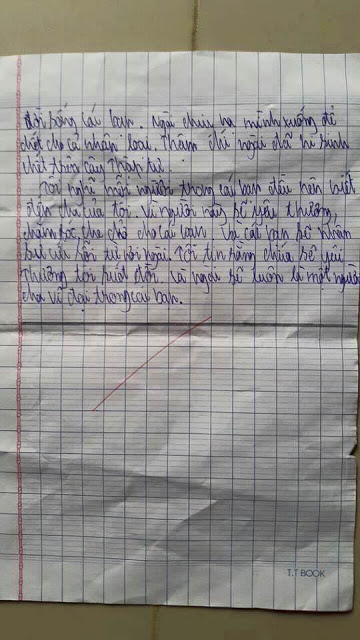 đời sống các bạn. Ngài chịu hạ mình xuống để
chết cho cả nhân loại. Thậm chí ngài đã hi sinh
chết trên cây Thập tự.
Tôi nghĩ mỗi người trong các bạn đều nên biết
đến cha của tôi. Vì người này sẽ yêu thương,
chăm sóc, che chở cho các bạn. Và các bạn sẽ nhận
sự cứu rỗi từ nơi ngài. Tôi tin rằng chúa sẽ yêu
thương tôi suốt đời. Và ngài sẽ luôn là một người
cha vĩ đại trong các bạn.
T.T BOOK